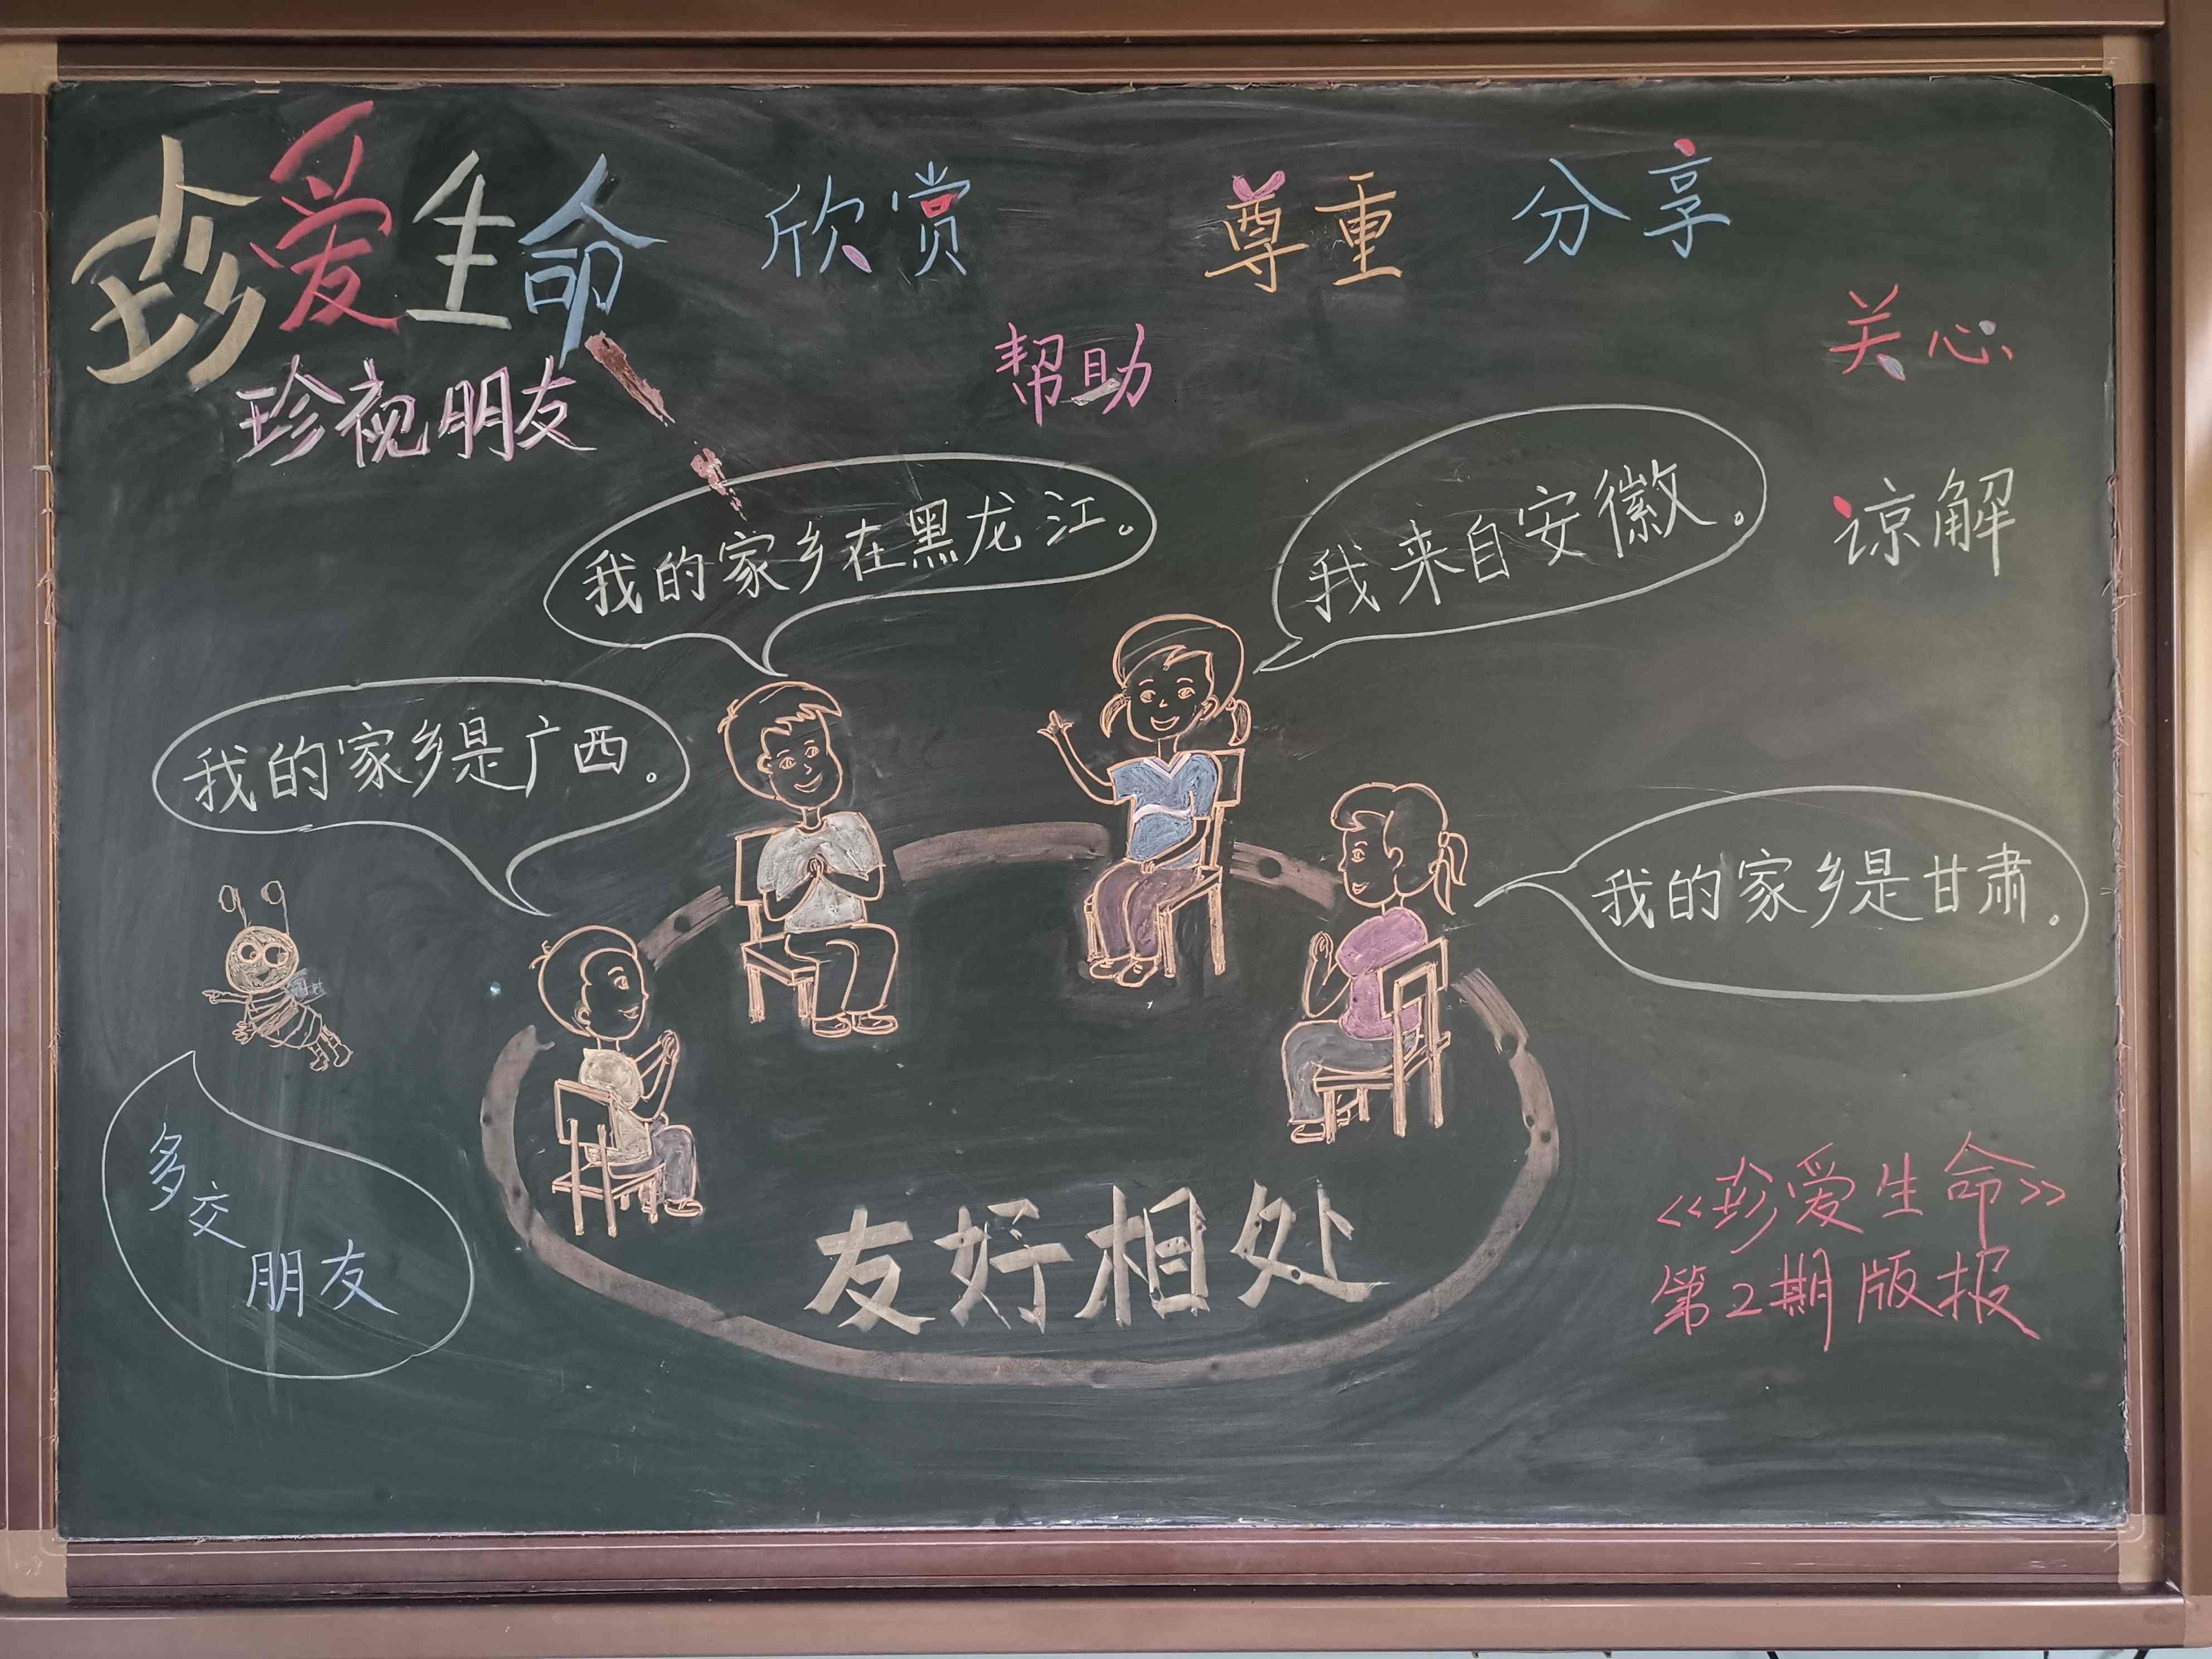 珍爱生命
欣赏
尊重
分享
珍视朋友
帮助
关心
谅解
我的家乡在黑龙江。
我来自安徽。
我的家乡是广西。
我的家乡是甘肃。
多交
朋友
友好相处
<<珍爱生命>>
第2期版报